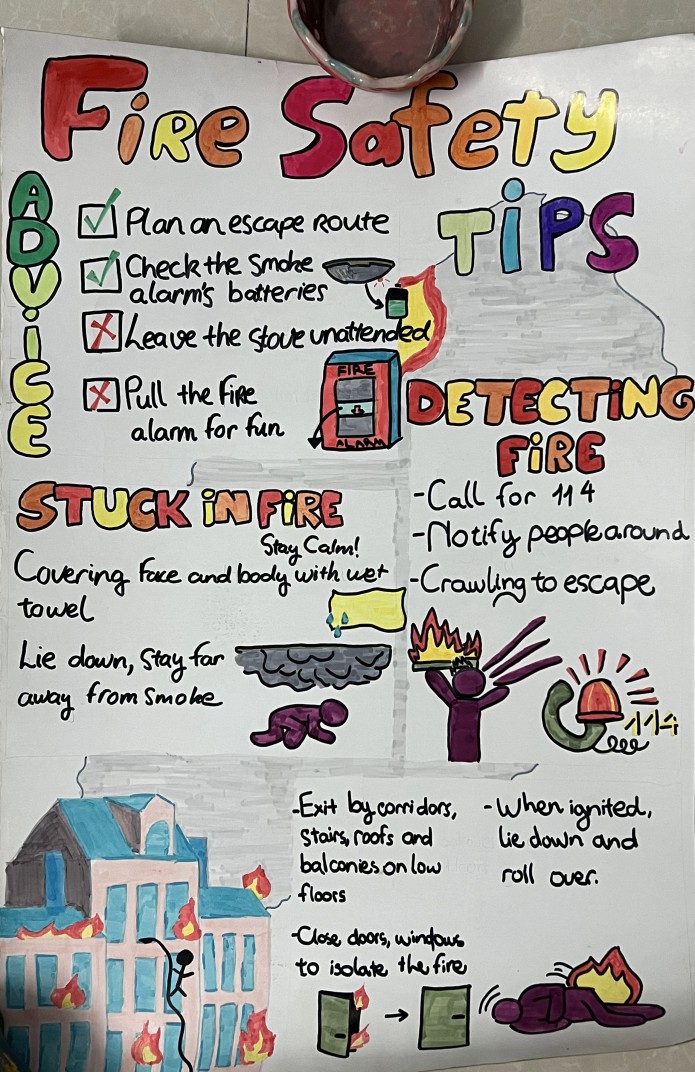 Fire Safety
TiPS
ADViCE
Plan an escape Route
Check the Smoke
alarm's batteries
Leave the stove unattended
Pull the Fire
alarm for fun
FIRE
ALARM
DETECTiNG
FiRE
-Call for 114
-Notify people around
-Crawling to escape
114
STUCK iN FiRE
Stay Calm!
Covering Face and body with wet
towel
Lie down, Stay far
away from Smoke
-Exit by corridors,
stairs, roofs and
balconies on low
floors
-Close doors, windows
to isolate the fire
-When ignited,
lie down and
roll over.